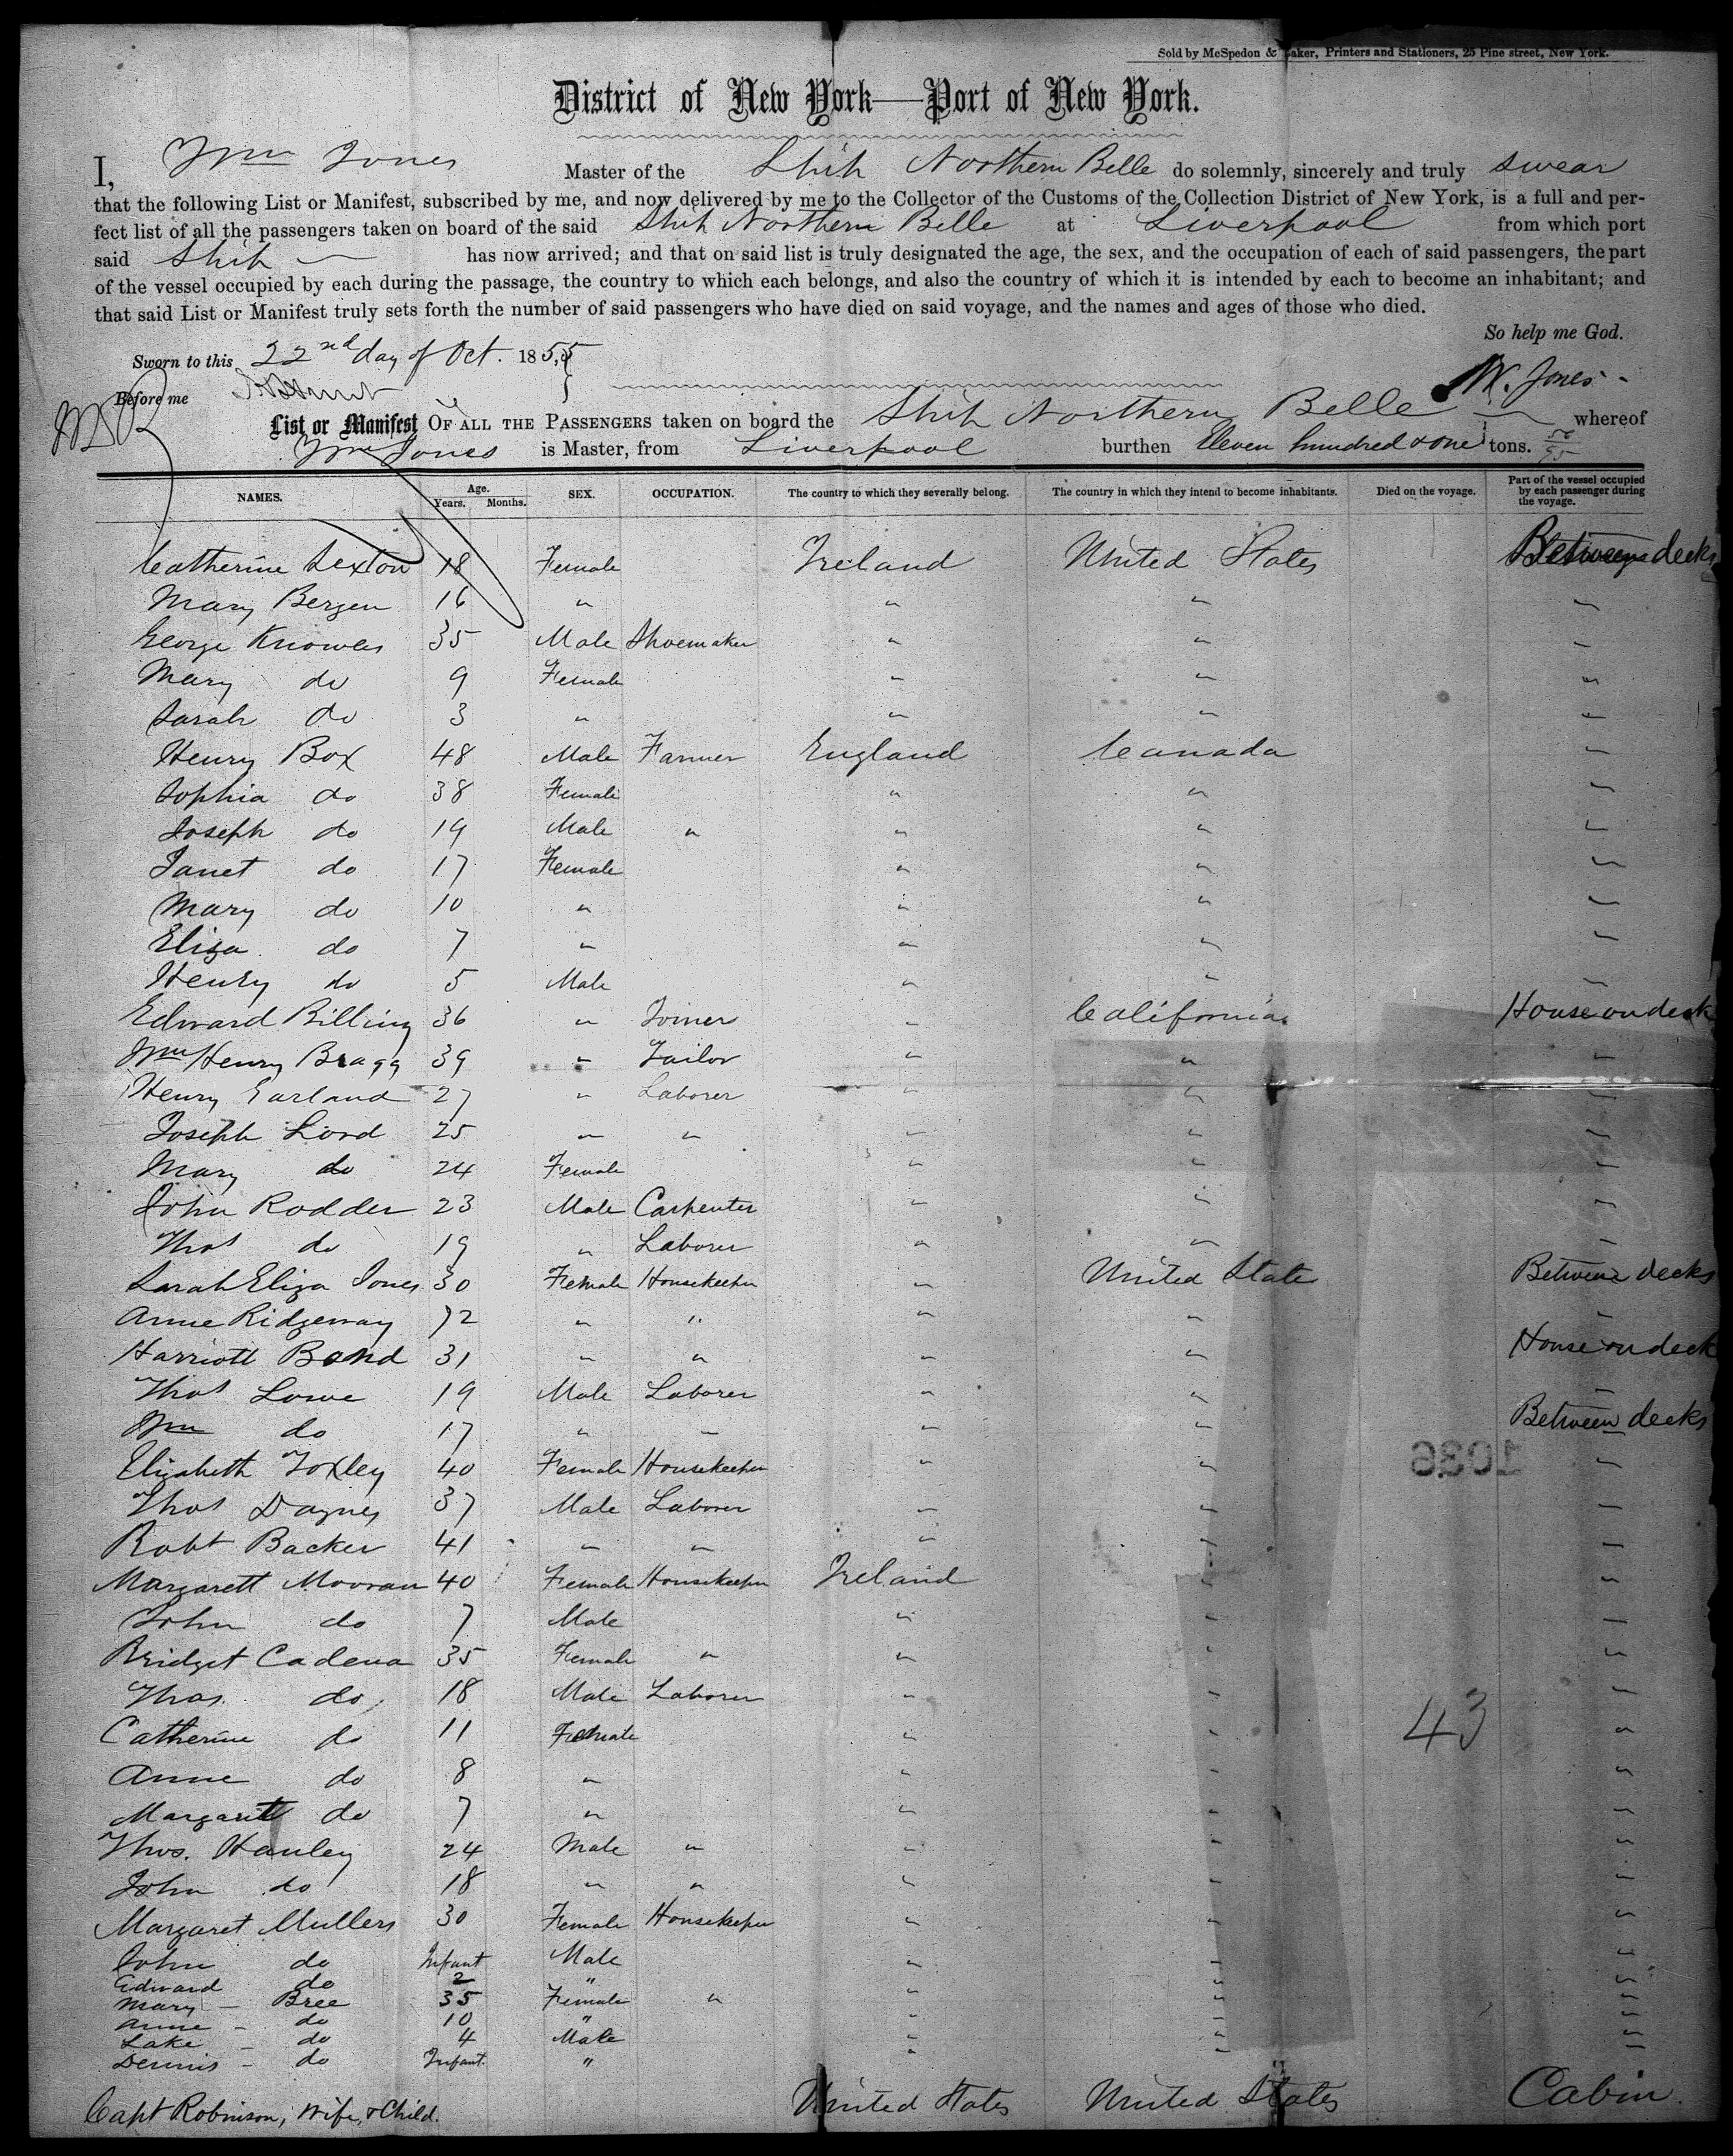 Sold by McSpedon & Baker, Printers and Stationers, 25 Pine street, New York.
District of New York—Port of New York.
I, Wm Jones Master of the Ship Northern Belle do solemnly, sincerely and truly swear
that the following List or Manifest, subscribed by me, and now delivered by me to the Collector of the Customs of the Collection District of New York, is a full and per-
fect list of all the passengers taken on board of the said Ship Northern Belle at Liverpool from which port
said Ship — has now arrived; and that on said list is truly designated the age, the sex, and the occupation of each of said passengers, the part
of the vessel occupied by each during the passage, the country to which each belongs, and also the country of which it is intended by each to become an inhabitant; and
that said List or Manifest truly sets forth the number of said passengers who have died on said voyage, and the names and ages of those who died.
So help me God.
Sworn to this 22nd day of Oct. 1855
W. Jones
Before me
List or Manifest OF ALL THE PASSENGERS taken on board the Ship Northern Belle whereof
Wm Jones is Master, from Liverpool burthen Eleven hundred & one tons. 50/95
NAMES. Age. Years. Months. SEX. OCCUPATION. The country to which they severally belong. The country in which they intend to become inhabitants. Died on the voyage. Part of the vessel occupied by each passenger during the voyage.
Catherine Sexton 18 Female Ireland United States Between decks
Mary Bergen 16 " " " "
George Knowles 35 Male Shoemaker " " "
Mary do 9 Female " " "
Sarah do 3 " " " "
Henry Box 48 Male Farmer England Canada "
Sophia do 38 Female " " "
Joseph do 19 Male " " " "
Janet do 17 Female " " "
Mary do 10 " " " "
Eliza do 7 " " " "
Henry do 5 Male " " "
Edward Billing 36 " Joiner " California House on deck
Wm Henry Bragg 39 " Tailor " " "
Henry Earland 27 " Laborer " " "
Joseph Lord 25 " " " " "
Mary do 24 Female " " "
John Rodder 23 Male Carpenter " " "
Thos do 19 " Laborer " " "
Sarah Eliza Jones 30 Female Housekeeper " United States Between decks
Anne Ridgeway 72 " " " " "
Harriott Bond 31 " " " " House on deck
Thos Lowe 19 Male Laborer " " "
Wm do 17 " " " " Between decks
Elizabeth Foxley 40 Female Housekeeper " " "
Thos Daynes 37 Male Laborer " " "
Robt Backer 41 " " " " "
Margarett Mooran 40 Female Housekeeper Ireland " "
John do 7 Male " " "
Bridget Cadena 35 Female " " " "
Thos. do 18 Male Laborer " " "
Catherine do 11 Female " " 43 "
Anne do 8 " " " "
Margarett do 7 " " " "
Thos. Hanley 24 Male " " " "
John do 18 " " " " "
Margaret Mullers 30 Female Housekeeper " " "
John do Infant Male " " "
Edward do 2 " " " "
Mary - Bree 35 Female " " " "
Anne - do 10 " " " "
Lake - do 4 Male " " "
Dennis - do Infant " " " "
Capt Robinson, Wife, & Child. United States United States Cabin
1036